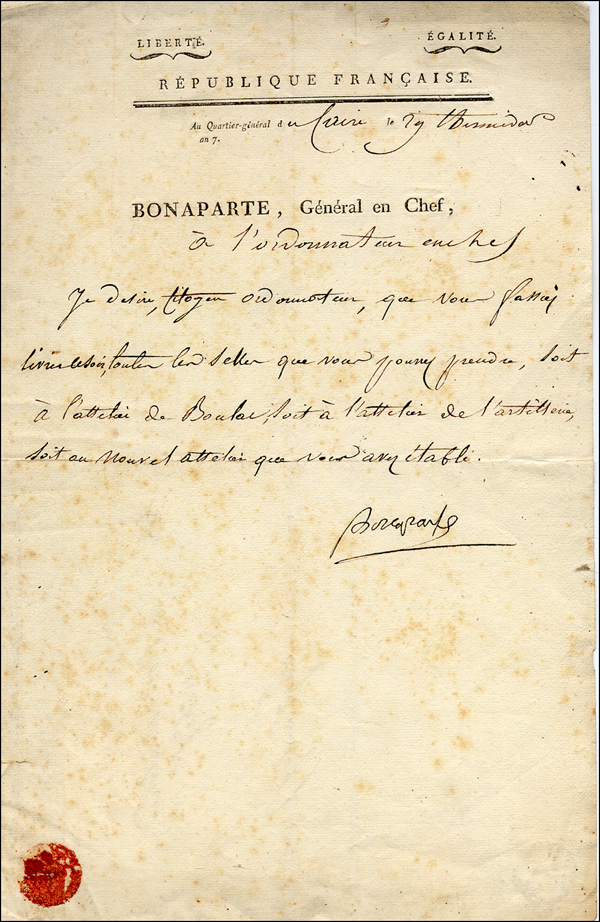 LIBERTÉ. ÉGALITÉ.
RÉPUBLIQUE FRANÇAISE.
Au Quartier-général du Caire le 29 thermidor
an 7.
BONAPARTE, Général en Chef,
à l'ordonnateur en chef
Je desire, Citoyen ordonnateur, que vous fassiez
livrer ce soir, toutes les selles que vous pourrez prendre, soit
à l'attelier de Boulac, soit à l'attelier de l'artillerie,
soit au nouvel attelier que vous avez établi.
Bonaparte